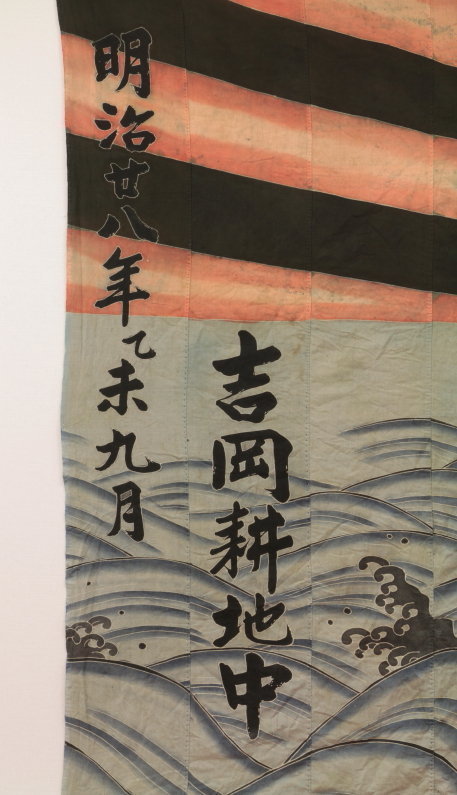 吉岡耕地中
明治廿八年乙未九月